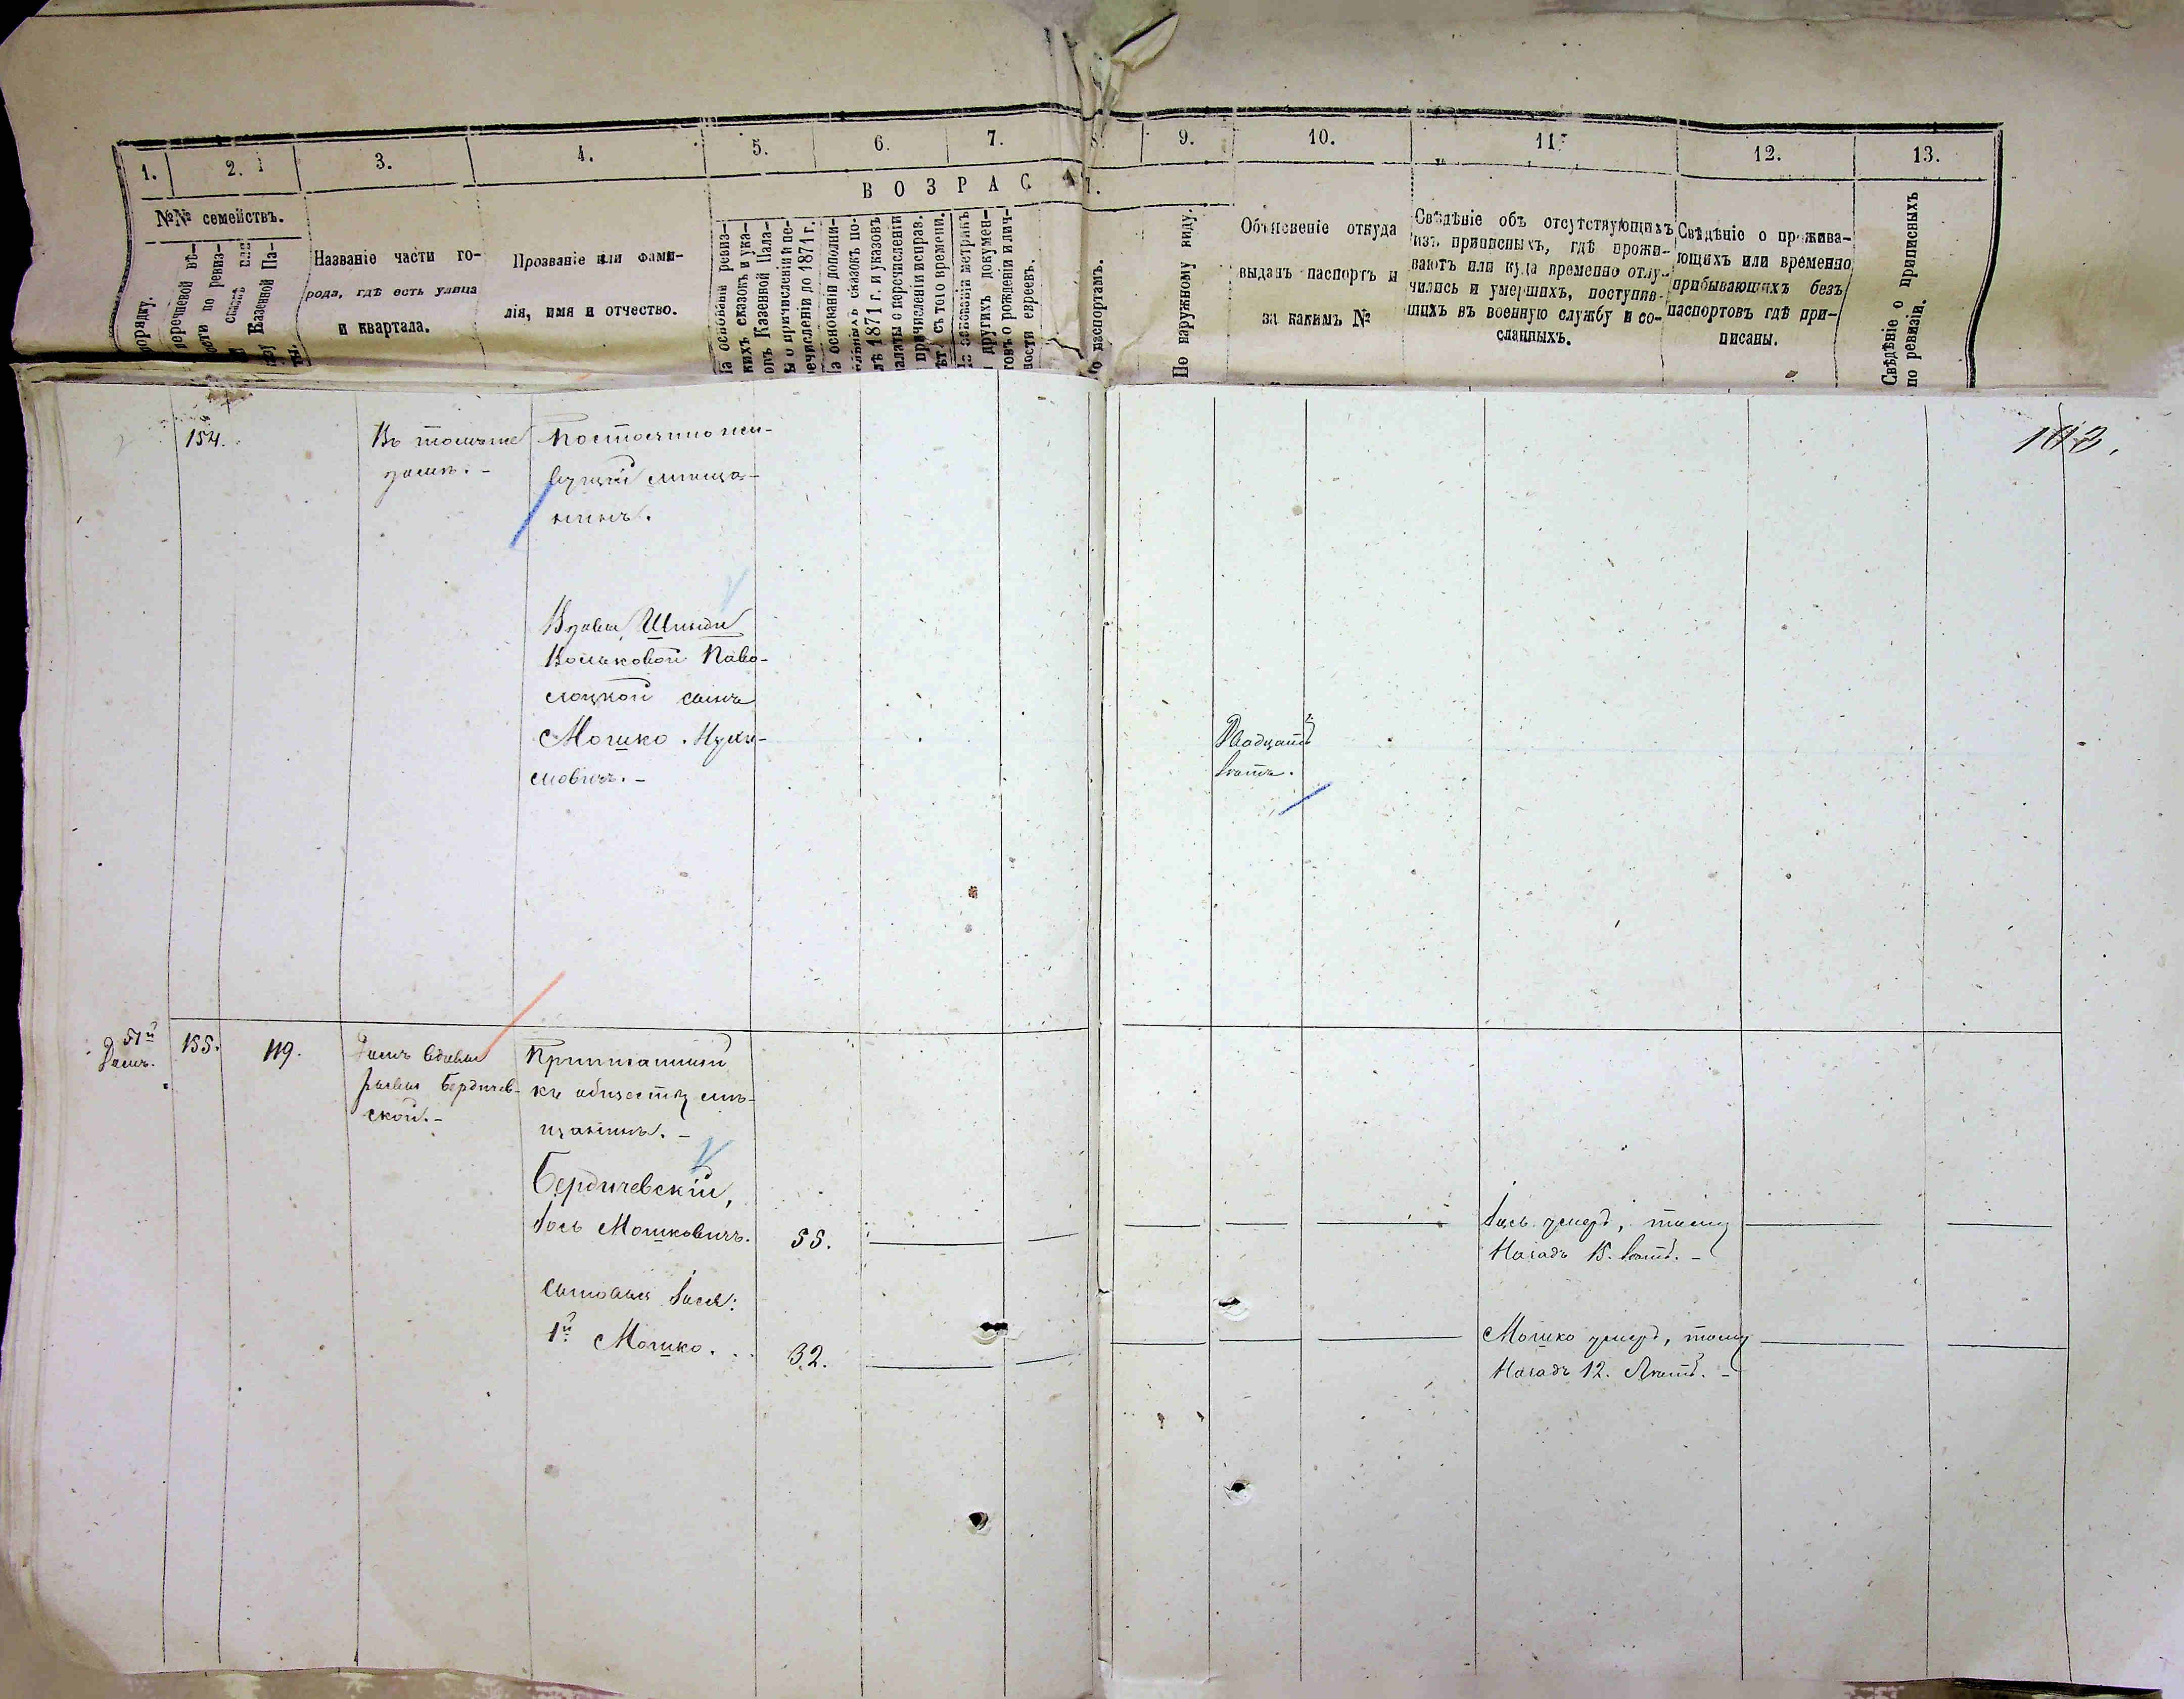 1. 2. 3. 4. 5. 6. 7. 8. 9. 10. 11. 12. 13.
№№ семействъ.
В О З Р А С Т.
порядку.
перечневой вѣ-
ости по ревиз-
Казенной Па-
ты.
Названіе части го-
рода, гдѣ есть улица
и квартала.
Прозваніе или фами-
лія, имя и отчество.
На основаніи ревиз-
кихъ сказокъ и ука-
овъ Казенной Пала-
ы о причисленіи и пе-
ечисленіи до 1871 г.
а основаніи дополни-
сказокъ по-
лѣ 1871 г. и указовъ
алаты о перечисленіи
причисленіи исправ.
ѣт съ того времени.
На основаніи метрикъ
и другихъ докумен-
товъ о рожденіи и лич-
ности евреевъ.
По паспортамъ.
По наружному виду.
Объясненіе откуда
выданъ паспортъ и
за какимъ №
Свѣдѣніе объ отсутствующихъ
изъ приписныхъ, гдѣ прожи-
ваютъ или куда временно отлу-
чились и умершихъ, поступив-
шихъ въ военную службу и со-
сланныхъ.
Свѣдѣніе о прожива-
ющихъ или временно
прибывающихъ безъ
паспортовъ гдѣ при-
писаны.
Свѣдѣніе о приписныхъ
по ревизіи.
154.
Въ томъже
домѣ. -
Постоянно жи-
вущій мѣща-
нинъ.
Вдовы
Вольковой Паво-
лоцкой сынъ
Мошко Нухи-
мовичъ. -
Двадцать
лѣтъ.
51й
Домъ.
155.
119.
Домъ вдовы
Бердичев-
ской. -
Приписанный
къ обществу мѣ-
щанинъ. -
Бердичевскій,
Іось Мошковичъ.
55.
Іось умеръ, тому
Назадъ 15. лѣтъ. -
Сыновья Іося:
1й Мошко. . .
32.
Мошко умеръ, тому
Назадъ 12. Лѣтъ. -